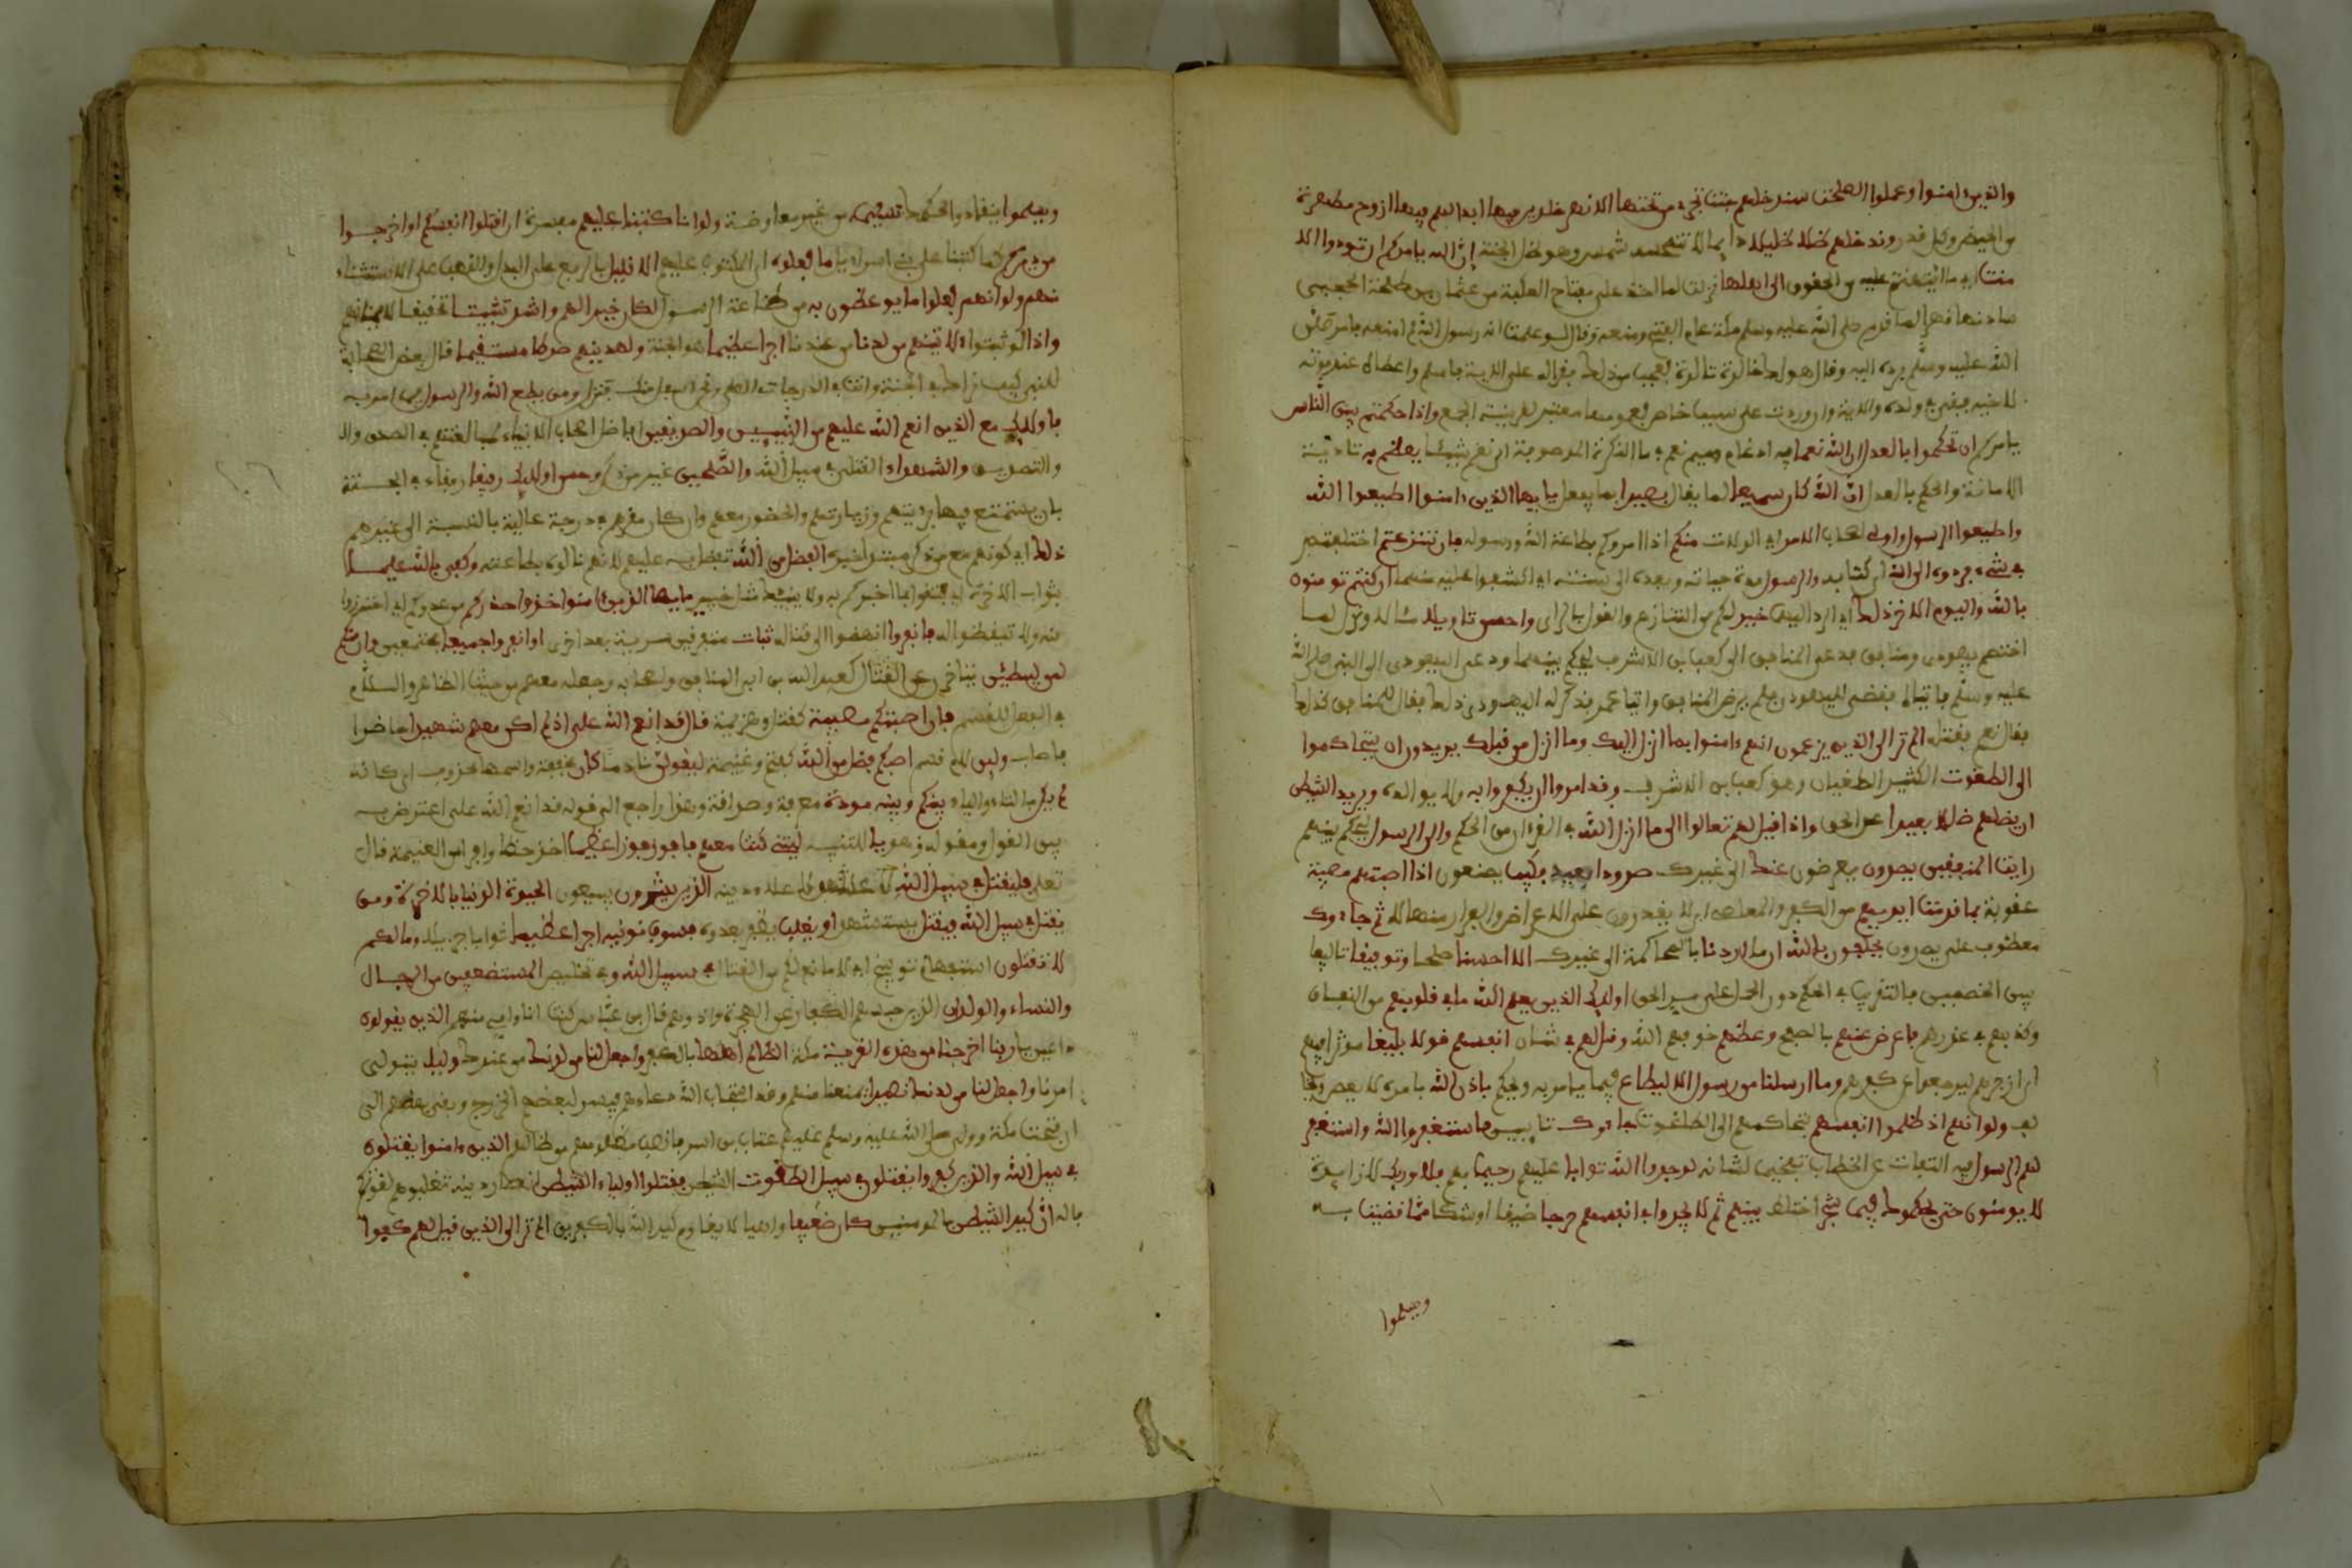 والذين ءامنوا وعملوا الصلحت سندخلهم جنت تجري من تحتها الانهر خلدين فيها ابدا لهم فيها ازوج مطهرة
من الحيض وكل قذر وندخلهم ظلا ظليلا دايما لا تنسخه شمس وهو ظل الجنة إن الله يامركم ان تودوا الا
منت اي ما ايتمنتم عليه من الحقوق الى اهلها نزلت لما اخذ علي مفتاح الكعبة من عثمان بن طلحة الحجبي
سادنها قهرا لما قدم صلى الله عليه وسلم مكة عام الفتح ومنعه وقال لو علمت انه رسول الله لم امنعه فامر صلى
الله عليه وسلم برده اليه وقال هاك خالدة تالدة فعجب من ذلك فقرا له علي الاية فاسلم واعطاه عند موته
لاخيه فبقي في ولده والاية وان وردت على سبب خاص فعمومها معتبر بقرينة الجمع واذا حكمتم بين الناس
يامركم ان تحكموا بالعدل ان الله نعما فيه ادغام ميم نعم في ما النكرة الموصوفة اي نعم شيئا يعظكم به تادية
الامانة والحكم بالعدل ان الله كان سميعا لما يقال بصيرا بما يفعل يايها الذين ءامنوا اطيعوا الله
واطيعوا الرسول واولي اصحاب الامر اي الولات منكم اذا امروكم بطاعة الله ورسوله فان تنزعتم اختلفتم
في شيء فردوه الى الله اي كتابه والرسول مدة حياته وبعده الى سنته اي اكشفوا عليه منهما ان كنتم تومنون
بالله واليوم الاخر ذلك اي الرد اليهما خير لكم من التنازع والقول بالراي واحسن تاويلا مئالا ونزل لما
اختصم يهودي ومنافق فدعى المنافق الى كعب بن الاشرف ليحكم بينهما ودعى اليهودي الى النبي صلى الله
عليه وسلم فاتياه فقضى لليهودي فلم يرض المنافق واتيا عمر فذكر له اليهودي ذلك فقال للمنافق اكذلك
فقال نعم فقتله الم تر الى الذين يزعمون انهم ءامنوا بما انزل اليك وما انزل من قبلك يريدون ان يتحاكموا
الى الطغوت الكثير الطغيان وهو كعب بن الاشرف وقد امروا ان يكفروا به ولا يوالوه ويريد الشيطن
ان يضلهم ضللا بعيدا عن الحق واذا قيل لهم تعالوا الى ما انزل الله في القرءان من الحكم والى الرسول ليحكم بينهم
رايت المنفقين يصدون يعرضون عنك الى غيرك صدودا فكيف يصنعون اذا اصبتهم مصيبة
عقوبة بما قدمت ايديهم من الكفر والمعاصي اي لا يقدرون على الاعراض والفرار منها لا ثم جاءوك
معطوف على يصدون يحلفون بالله ان ما اردنا بالمحاكمة الى غيرك الا احسنا صلحا وتوفيقا تاليفا
بين الخصمين بالتقريب في الحكم دون الحمل على مر الحق اوليك الذين يعلم الله ما في قلوبهم من النفاق
وكذبهم في عذرهم فاعرض عنهم بالصفح وعظهم خوفهم الله وقل لهم في شان انفسهم قولا بليغا موثرا فيهم
اي ازجرهم ليرجعوا عن كفرهم وما ارسلنا من رسول الا ليطاع فيما يامر به ويحكم باذن الله بامره لا يعصى ويخا
لف ولو انهم اذ ظلموا انفسهم بتحاكمهم الى الطاغوت جاءوك تايبين فاستغفروا الله واستغفر
لهم الرسول فيه التفات عن الخطاب تفخيما لشانه لوجدوا الله توابا عليهم رحيما بهم فلا وربك لا زايدة
لا يومنون حتى يحكموك فيما شجر اختلط بينهم ثم لا يجدوا في انفسهم حرجا ضيقا او شكا مما قضيت به
ويسلموا
ويسلموا ينقادوا لحكمك تسليما من غير معارضة ولو انا كتبنا عليهم مفسرة ان اقتلوا انفسكم او اخرجوا
من ديركم كما كتبنا على بني اسراءيل ما فعلوه اي المكتوب عليهم الا قليل بالرفع على البدل والنصب على الاستثناء
منهم ولو انهم فعلوا ما يوعظون به من طاعة الرسول لكان خيرا لهم واشد تثبيتا تحقيقا لايمانهم
واذا لو ثبتوا لاتينهم من لدنا من عندنا اجرا عظيما هو الجنة ولهدينهم صرطا مستقيما قال بعض الصحابة
للنبي كيف نراك في الجنة وانت في الدرجات العلى ونحن اسفل منك فنزل ومن يطع الله والرسول فيما امر به
فاوليك مع الذين انعم الله عليهم من النبيين والصديقين افاضل اصحاب الانبياء لمبالغتهم في الصدق وا
والتصديق والشهداء القتلى في سبيل الله والصلحين غير من ذكر وحسن اوليك رفيقا رفقاء في الجنة
بان يستمتع فيها برؤيتهم وزيارتهم والحضور معهم وان كان مقرهم في درجة عالية بالنسبة الى غيرهم
ذلك اي كونهم مع من ذكر مبتدا خبره الفضل من الله تفضل به عليهم لا انهم نالوه بطاعته وكفى بالله عليما
بثواب الاخرة اي فثقوا بما اخبركم به ولا ينبئك مثل خبير يايها الذين ءامنوا خذوا حذركم من عدوكم اي احترزوا
منه وتيقظوا له فانفروا انهضوا الى قتاله ثبات متفرقين سرية بعد اخرى او انفروا جميعا مجتمعين وان منكم
لمن ليبطئن يتاخر عن القتال كعبد الله بن ابي المنافق واصحابه وجعله منهم من حيث الظاهر واللام
في الفعل للقسم فان اصبتكم مصيبة كقتل وهزيمة قال قد انعم الله علي اذ لم اكن معهم شهيدا حاضرا
فاصاب ولين لام قسم اصبكم فضل من الله كفتح وغنيمة ليقولن نادما كان مخففة واسمها محذوف اي كانه
لم يكن بالتاء والياء بينكم وبينه مودة معرفة وصداقة وهذا راجع الى قوله قد انعم الله علي اعترض به
بين القول ومقوله وهو يا للتنبيه ليتني كنت معهم فافوز فوزا عظيما اخذ حظا وافرا من الغنيمة قال
تعلى فليقتل في سبيل الله لاعلاء دينه الذين يشرون يبيعون الحيوة الدنيا بالاخرة ومن
يقتل في سبيل الله فيقتل يستشهد او يغلب يظفر بعدوه فسوف نوتيه اجرا عظيما ثوابا جزيلا وما لكم
لا تقتلون استفهام توبيخ اي لا مانع لكم من القتال في سبيل الله وفي تخليص المستضعفين من الرجال
والنساء والولدان الذين حبسهم الكفار عن الهجرة واذوهم قال ابن عباس كنت انا وامي منهم الذين يقولون
داعين يا ربنا اخرجنا من هذه القرية مكة الظالم اهلها بالكفر واجعل لنا من لدنك من عندك وليا يتولى
امرنا واجعل لنا من لدنك نصيرا يمنعنا منهم وقد استجاب الله دعاءهم فيسر لبعضهم الخروج وبقي بعضهم الى
ان فتحت مكة وولى صلى الله عليه وسلم عليهم عتاب بن اسيد فانصف مظلومهم من ظالمهم الذين ءامنوا يقتلون
في سبيل الله والذين كفروا يقتلون في سبيل الطغوت الشيطن فقتلوا اولياء الشيطن انصار دينه تغلبوهم لقوتكم
بالله ان كيد الشيطن بالمومنين كان ضعيفا واهيا لا يقاوم كيد الله بالكفرين الم تر الى الذين قيل لهم كفوا